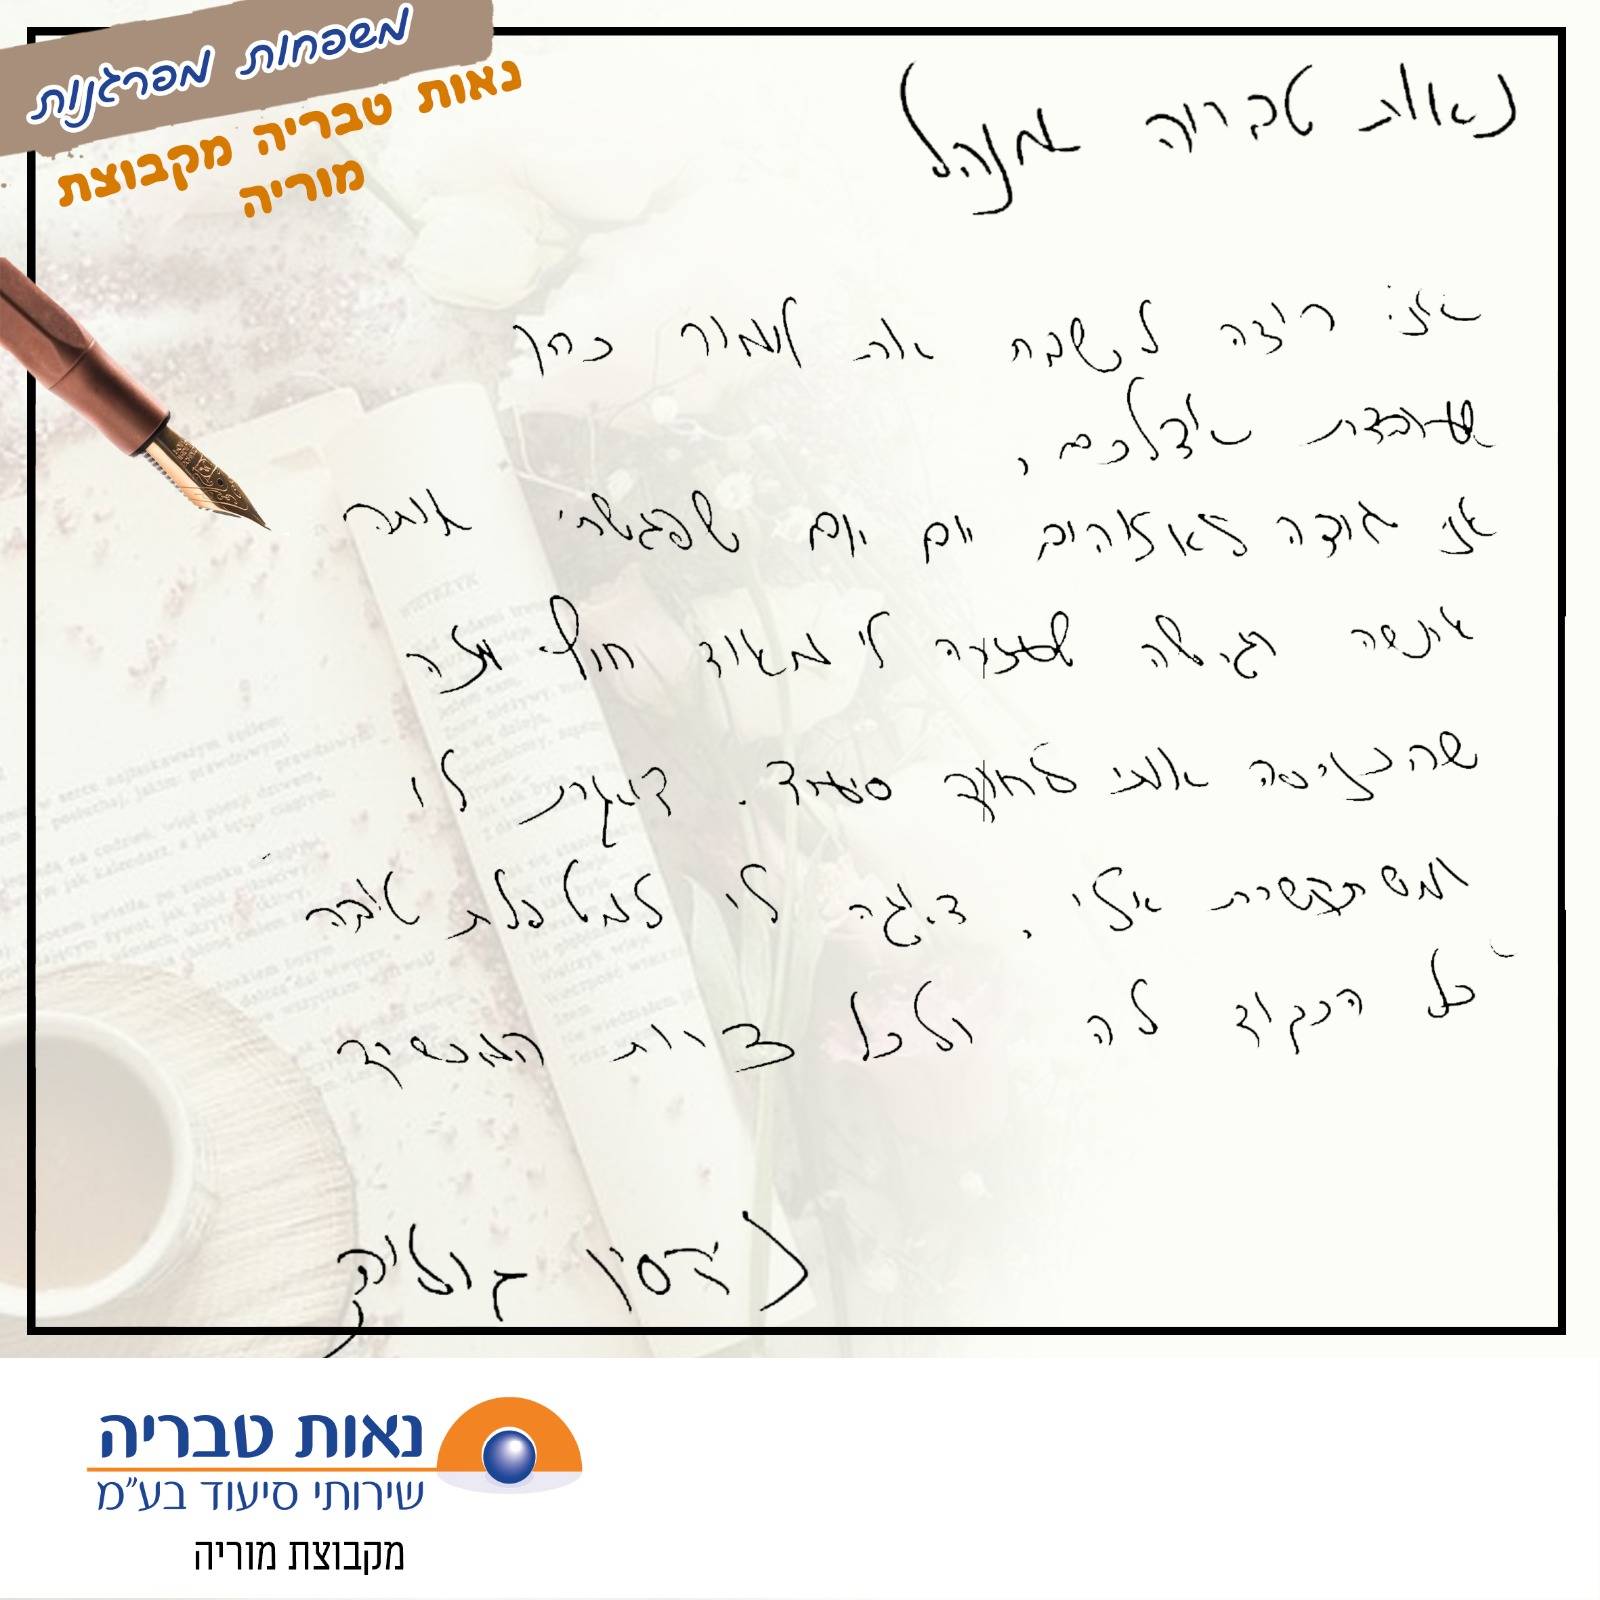 משפחות מפרגנות
נאות טבריה מקבוצת
מוריה
נאות טבריה מנהל
אני רוצה לשבח את לימור כהן
שעובדת אצלכם,
אני מודה לאלוהים יום יום שפגשתי אותה
אישה רגישה שעזרה לי מאוד חוץ מזה
שהכניסה אותי לחוק סיעוד. דואגת לי
ומתקשרת אלי, דאגה לי למטפלת טובה
כל הכבוד לה ולכל צוות המשרד
נאות טבריה
שירותי סיעוד בע"מ
מקבוצת מוריה